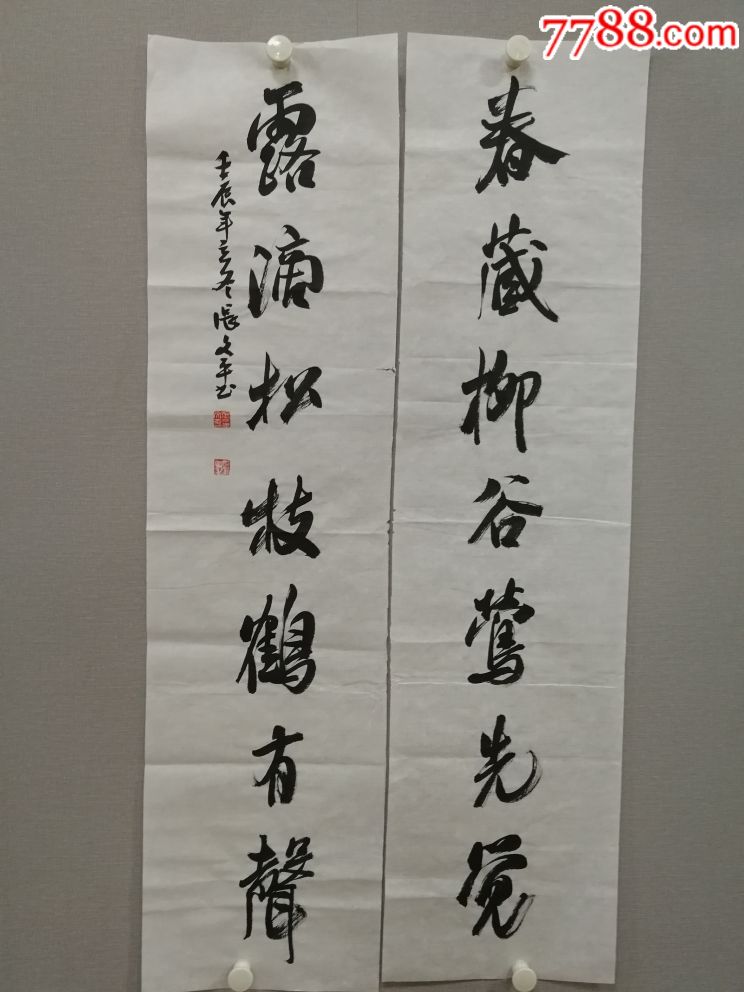 7788.com
春藏柳谷莺先觉
露滴松枝鹤有聲
壬辰年立冬張文平书